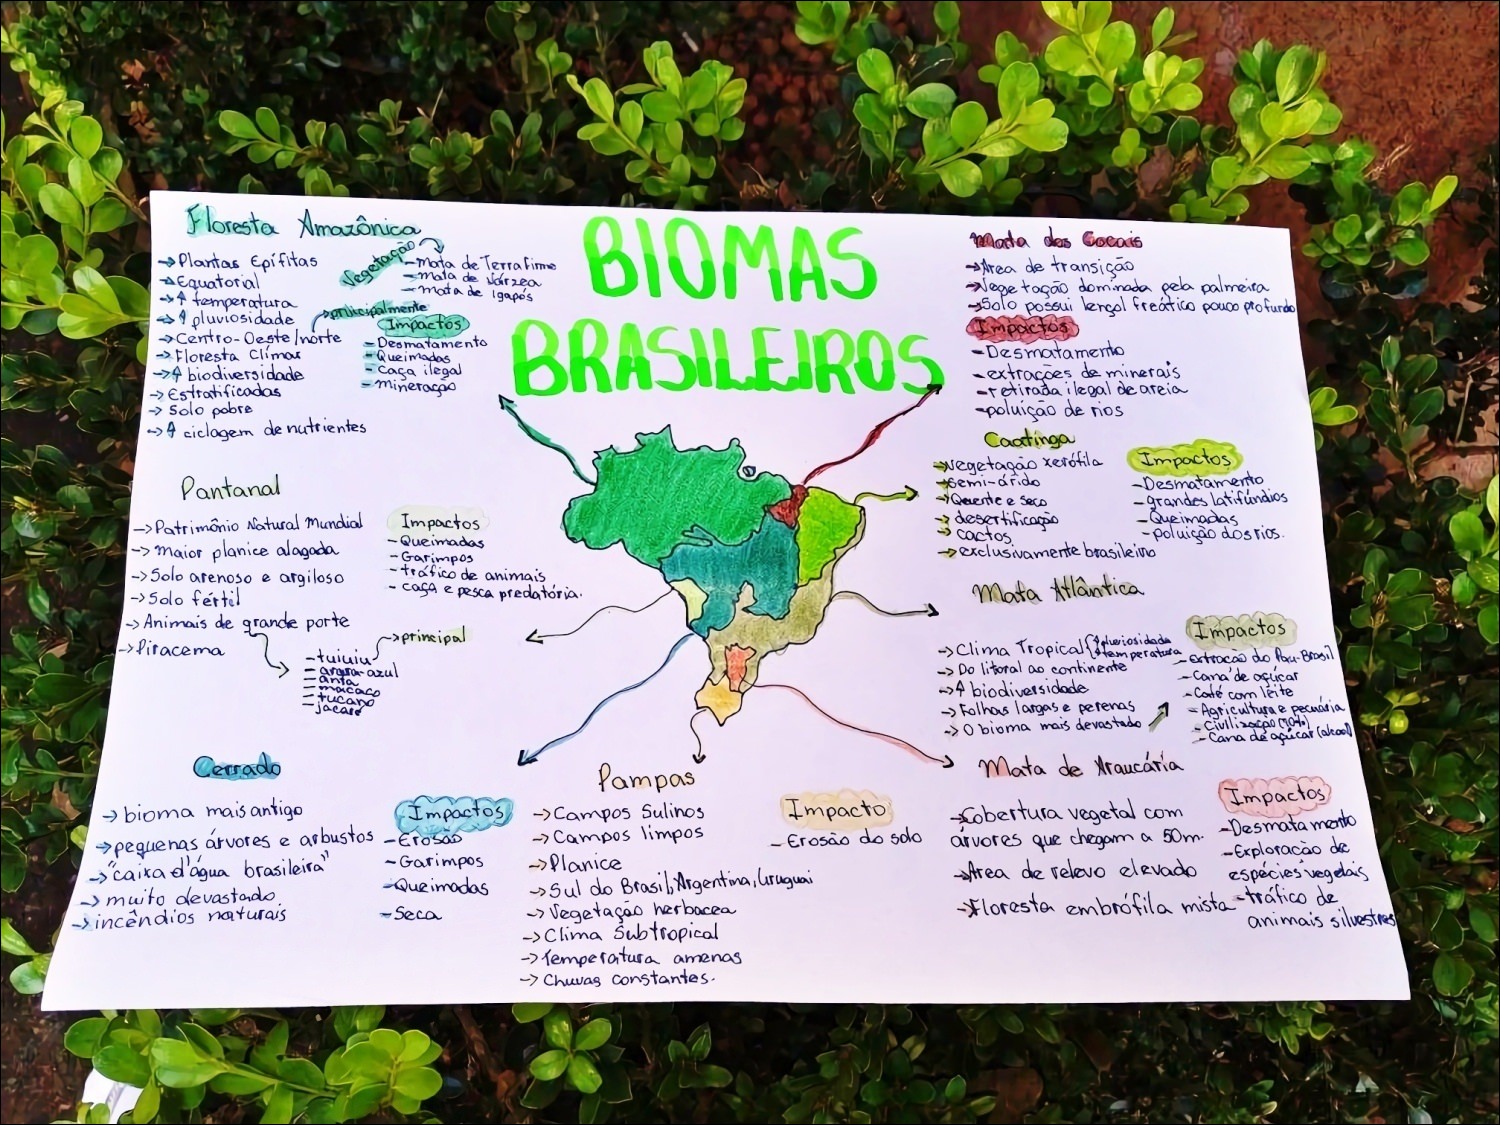 BIOMAS
BRASILEIROS
Floresta Amazônica
→ Plantas Epífitas
→ Equatorial
→ ↑ temperatura
→ ↑ pluviosidade
→ Centro-Oeste/norte
→ Floresta Clímax
→ ↑ biodiversidade
→ Estratificadas
→ Solo pobre
→ ↑ ciclagem de nutrientes
Vegetação
- Mata de Terra Firme
- Mata de Várzea
- Mata de Igapós
principalmente
Impactos
- Desmatamento
- Queimadas
- Caça ilegal
- Mineração
Pantanal
→ Patrimônio Natural Mundial
→ Maior planice alagada
→ Solo arenoso e argiloso
→ Solo fértil
→ Animais de grande porte
→ Piracema
→ principal
- tuiuiu
- arara-azul
- anta
- macaco
- tucano
- jacaré
Impactos
- Queimadas
- Garimpos
- tráfico de animais
- caça e pesca predatória.
Cerrado
→ bioma mais antigo
→ pequenas árvores e arbustos
→ "caixa d'água brasileira"
→ muito devastado
→ incêndios naturais
Impactos
- Erosão
- Garimpos
- Queimadas
- Seca
Pampas
→ Campos Sulinos
→ Campos limpos
→ Planice
→ Sul do Brasil, Argentina, Uruguai
→ Vegetação herbacea
→ Clima Subtropical
→ Temperatura amenas
→ Chuvas constantes.
Impacto
- Erosão do solo
Mata dos Cocais
→ Área de transição
→ Vegetação dominada pela palmeira
→ Solo possui lençol freático pouco profundo
Impactos
- Desmatamento
- extrações de minerais
- retirada ilegal de areia
- poluição de rios
Caatinga
→ vegetação xerófila
→ semi-árido
→ Quente e seco
→ desertificação
→ cactos
→ exclusivamente brasileiro
Impactos
- Desmatamento
- grandes latifúndios
- Queimadas
- poluição dos rios.
Mata Atlântica
→ Clima Tropical { ↑ pluviosidade
↑ temperatura
→ Do litoral ao continente
→ ↑ biodiversidade
→ Folhas largas e perenas
→ O bioma mais devastado
Impactos
- Extração do Pau-Brasil
- Cana de açúcar
- Café com leite
- Agricultura e pecuária
- Civilização (70%)
- Cana de açúcar (alcool)
Mata de Araucária
→ Cobertura vegetal com
árvores que chegam a 50m.
→ Área de relevo elevado
→ Floresta embrófila mista
Impactos
- Desmatamento
- Exploração de
espécies vegetais
- tráfico de
animais silvestres